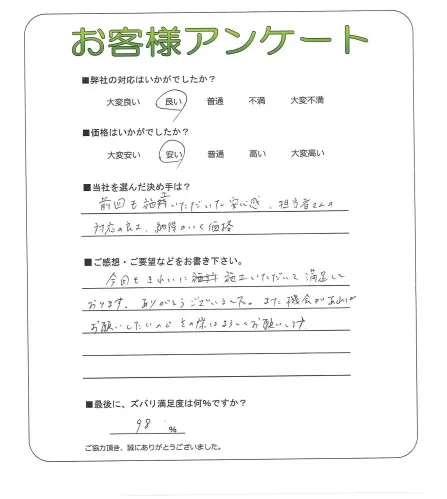 お客様アンケート
■弊社の対応はいかがでしたか?
大変良い 良い 普通 不満 大変不満
■価格はいかがでしたか?
大変安い 安い 普通 高い 大変高い
■当社を選んだ決め手は?
前回も施工いただいた安心感、担当者さんの
対応の良さ、納得のいく価格
■ご感想・ご要望などをお書き下さい。
今回もきれいに施工いただいて満足して
おります。ありがとうございました。また機会があれば
お願いしたいのでその際はよろしくお願いします
■最後に、ズバリ満足度は何%ですか?
98 %
ご協力頂き、誠にありがとうございました。